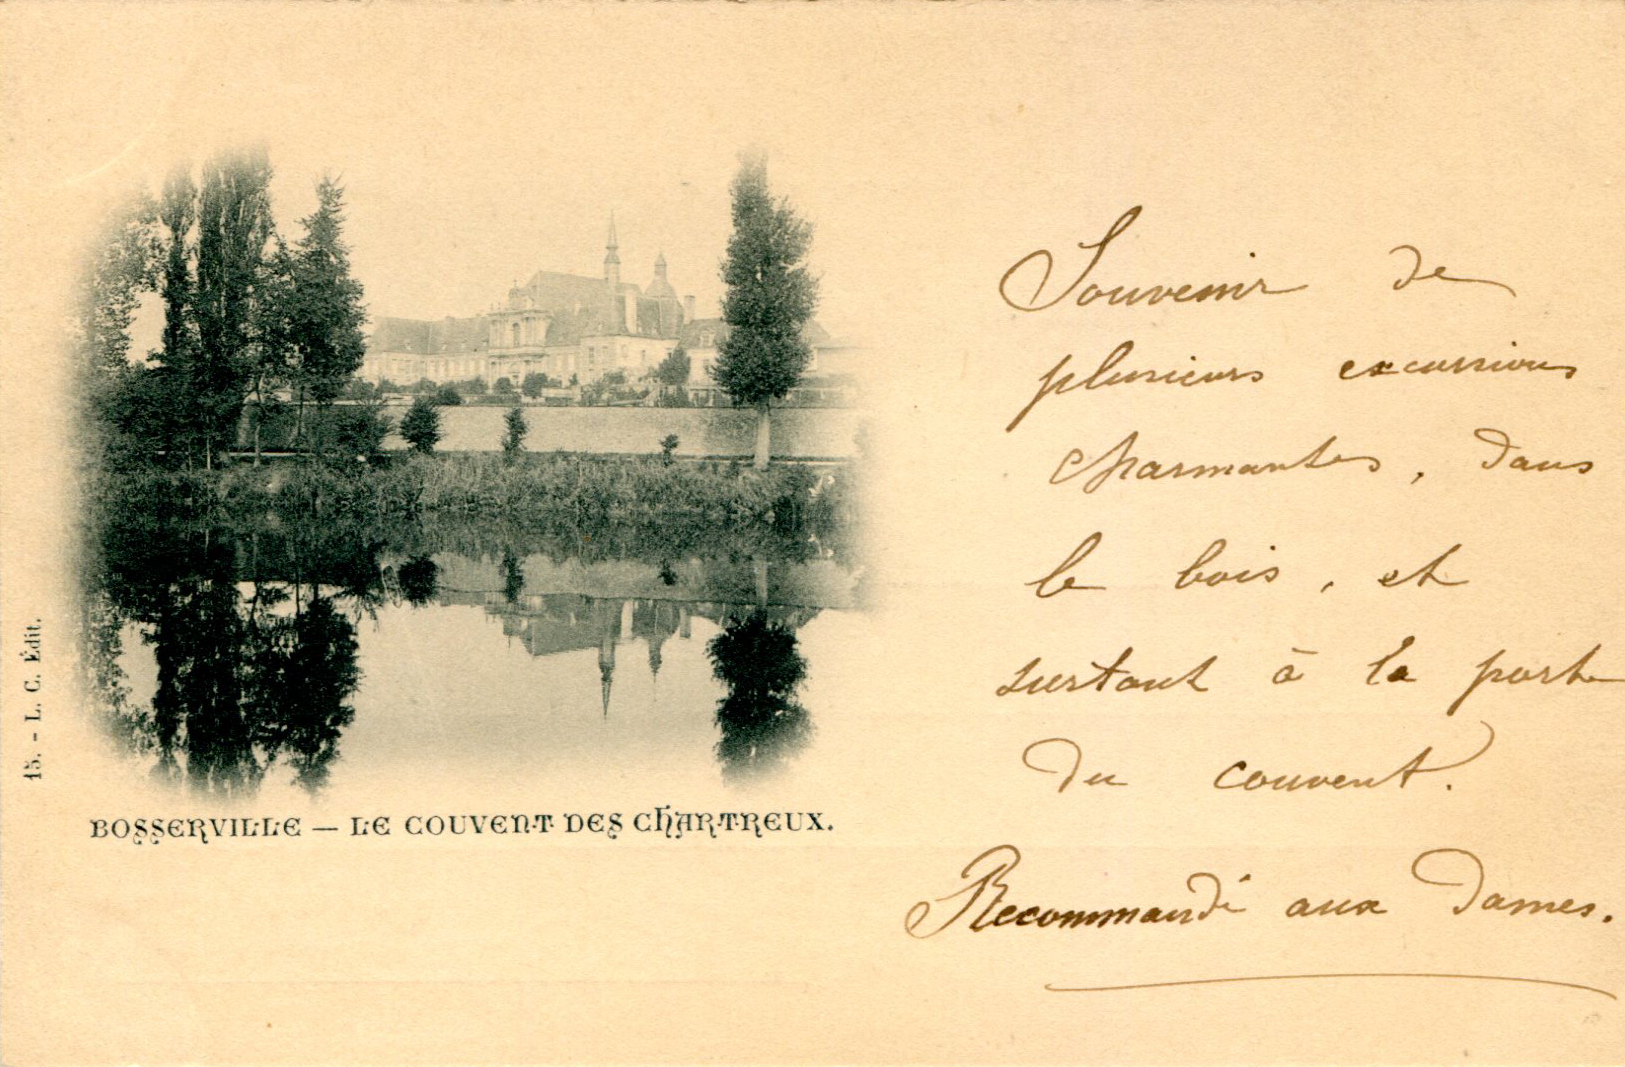 Souvenir de
plusieurs excursions
charmantes, dans
le bois, et
surtout à la porte
du couvent.
Recommandé aux Dames.
BOSSERVILLE — LE COUVENT DES CHARTREUX.
15. - L. C. Édit.